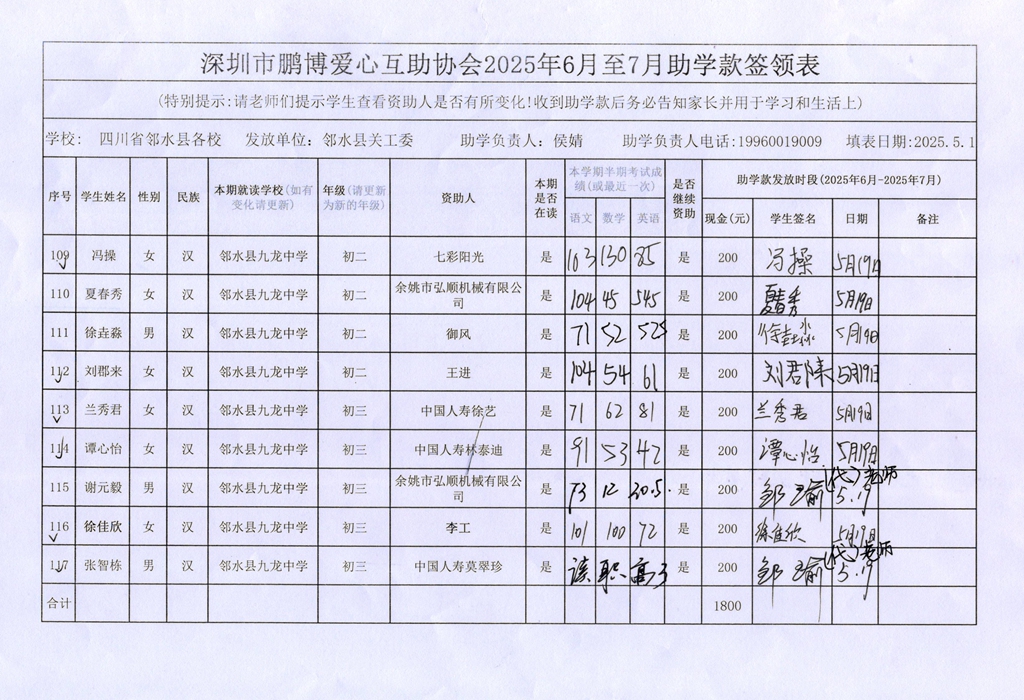 深圳市鹏博爱心互助协会2025年6月至7月助学款签领表
(特别提示:请老师们提示学生查看资助人是否有所变化!收到助学款后务必告知家长并用于学习和生活上)
学校: 四川省邻水县各校 发放单位: 邻水县关工委 助学负责人: 侯婧 助学负责人电话:19960019009 填表日期:2025.5.1
序号 学生姓名 性别 民族 本期就读学校(如有变化请更新) 年级(请更新为新的年级) 资助人 本期是否在读 本学期半期考试成绩(或最近一次) 是否继续资助 助学款发放时段(2025年6月-2025年7月)
语文 数学 英语 现金(元) 学生签名 日期 备注
109 冯操 女 汉 邻水县九龙中学 初二 七彩阳光 是 103 130 85 是 200 冯操 5月19日
110 夏春秀 女 汉 邻水县九龙中学 初二 余姚市弘顺机械有限公司 是 104 45 54.5 是 200 夏春秀 5月19日
111 徐垚淼 男 汉 邻水县九龙中学 初二 御风 是 71 52 52.5 是 200 徐垚淼 5月19日
112 刘郡来 女 汉 邻水县九龙中学 初二 王进 是 104 54 61 是 200 刘君陎 5月19日
113 兰秀君 女 汉 邻水县九龙中学 初三 中国人寿徐艺 是 71 62 81 是 200 兰秀君 5月19日
114 谭心怡 女 汉 邻水县九龙中学 初三 中国人寿林泰迪 是 91 53 42 是 200 谭心怡 5月19日
115 谢元毅 男 汉 邻水县九龙中学 初三 余姚市弘顺机械有限公司 是 73 12 20.5. 是 200 邹 瑜(代)老师 5.19
116 徐佳欣 女 汉 邻水县九龙中学 初三 李工 是 101 100 72 是 200 徐佳欣 5月19日
117 张智栋 男 汉 邻水县九龙中学 初三 中国人寿莫翠珍 是 读 职 高了 是 200 邹 瑜(代)老师 5.19
合计 1800